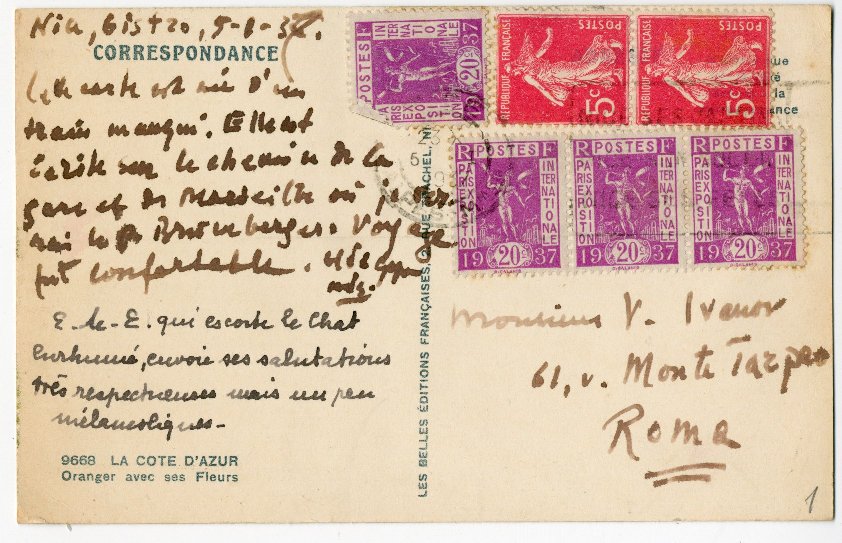 Nice, Bistro, 5-1-37.
CORRESPONDANCE
Cette carte est née d'un
train manqué. Elle est
écrite sur le chemin de la
gare et de Marseille où
Voyage
fut confortable.
E.-le-E. qui escorte le Chat
Enrhumé, envoie ses salutations
très respectueuses mais un peu
mélancoliques-
9668 LA COTE D'AZUR
Oranger avec ses Fleurs
LES BELLES ÉDITIONS FRANÇAISES,
POSTES RF
PARIS EXPOSITION INTERNATIONALE
20c 37
RÉPUBLIQUE FRANÇAISE POSTES 5c
RÉPUBLIQUE FRANÇAISE POSTES 5c
RF POSTES
PARIS EXPOSITION INTERNATIONALE
19 20c 37
RF POSTES
PARIS EXPOSITION INTERNATIONALE
19 20c 37
RF POSTES
PARIS EXPOSITION INTERNATIONALE
19 20c 37
Monsieur V. Ivanov
61, v. Monte Tarpeo
Roma
1